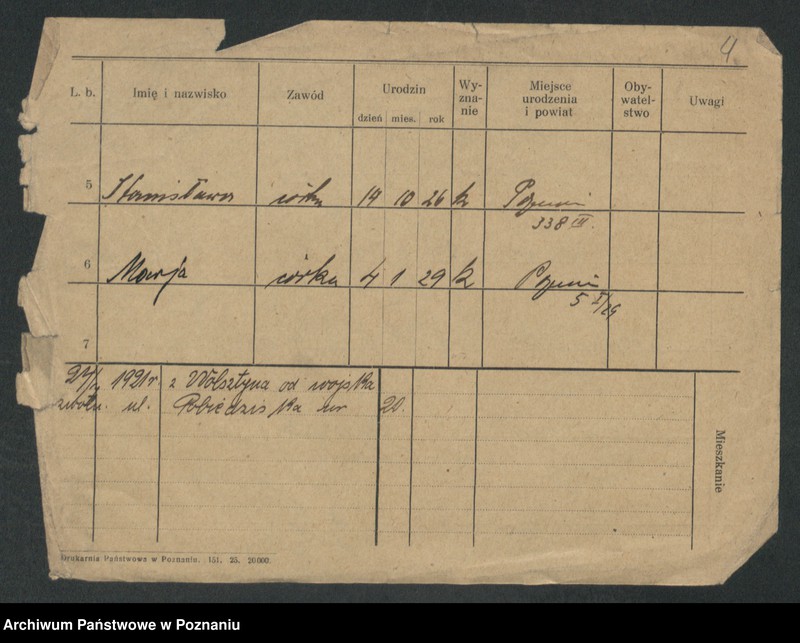 4
L. b. Imię i nazwisko Zawód Urodzin Wy-zna-nie Miejsce urodzenia i powiat Oby-watel-stwo Uwagi
dzień mies. rok
5 Stanisława córka 14 10 26 k
338 III.
6 Marja córka 4 1 29 k
5 I/29
7
1921 r. z Wolsztyna od wojska
zwoln. ul. Pobiedziska nr 20.
Mieszkanie
Drukarnia Państwowa w Poznaniu. 151. 25. 20 000.
Archiwum Państwowe w Poznaniu